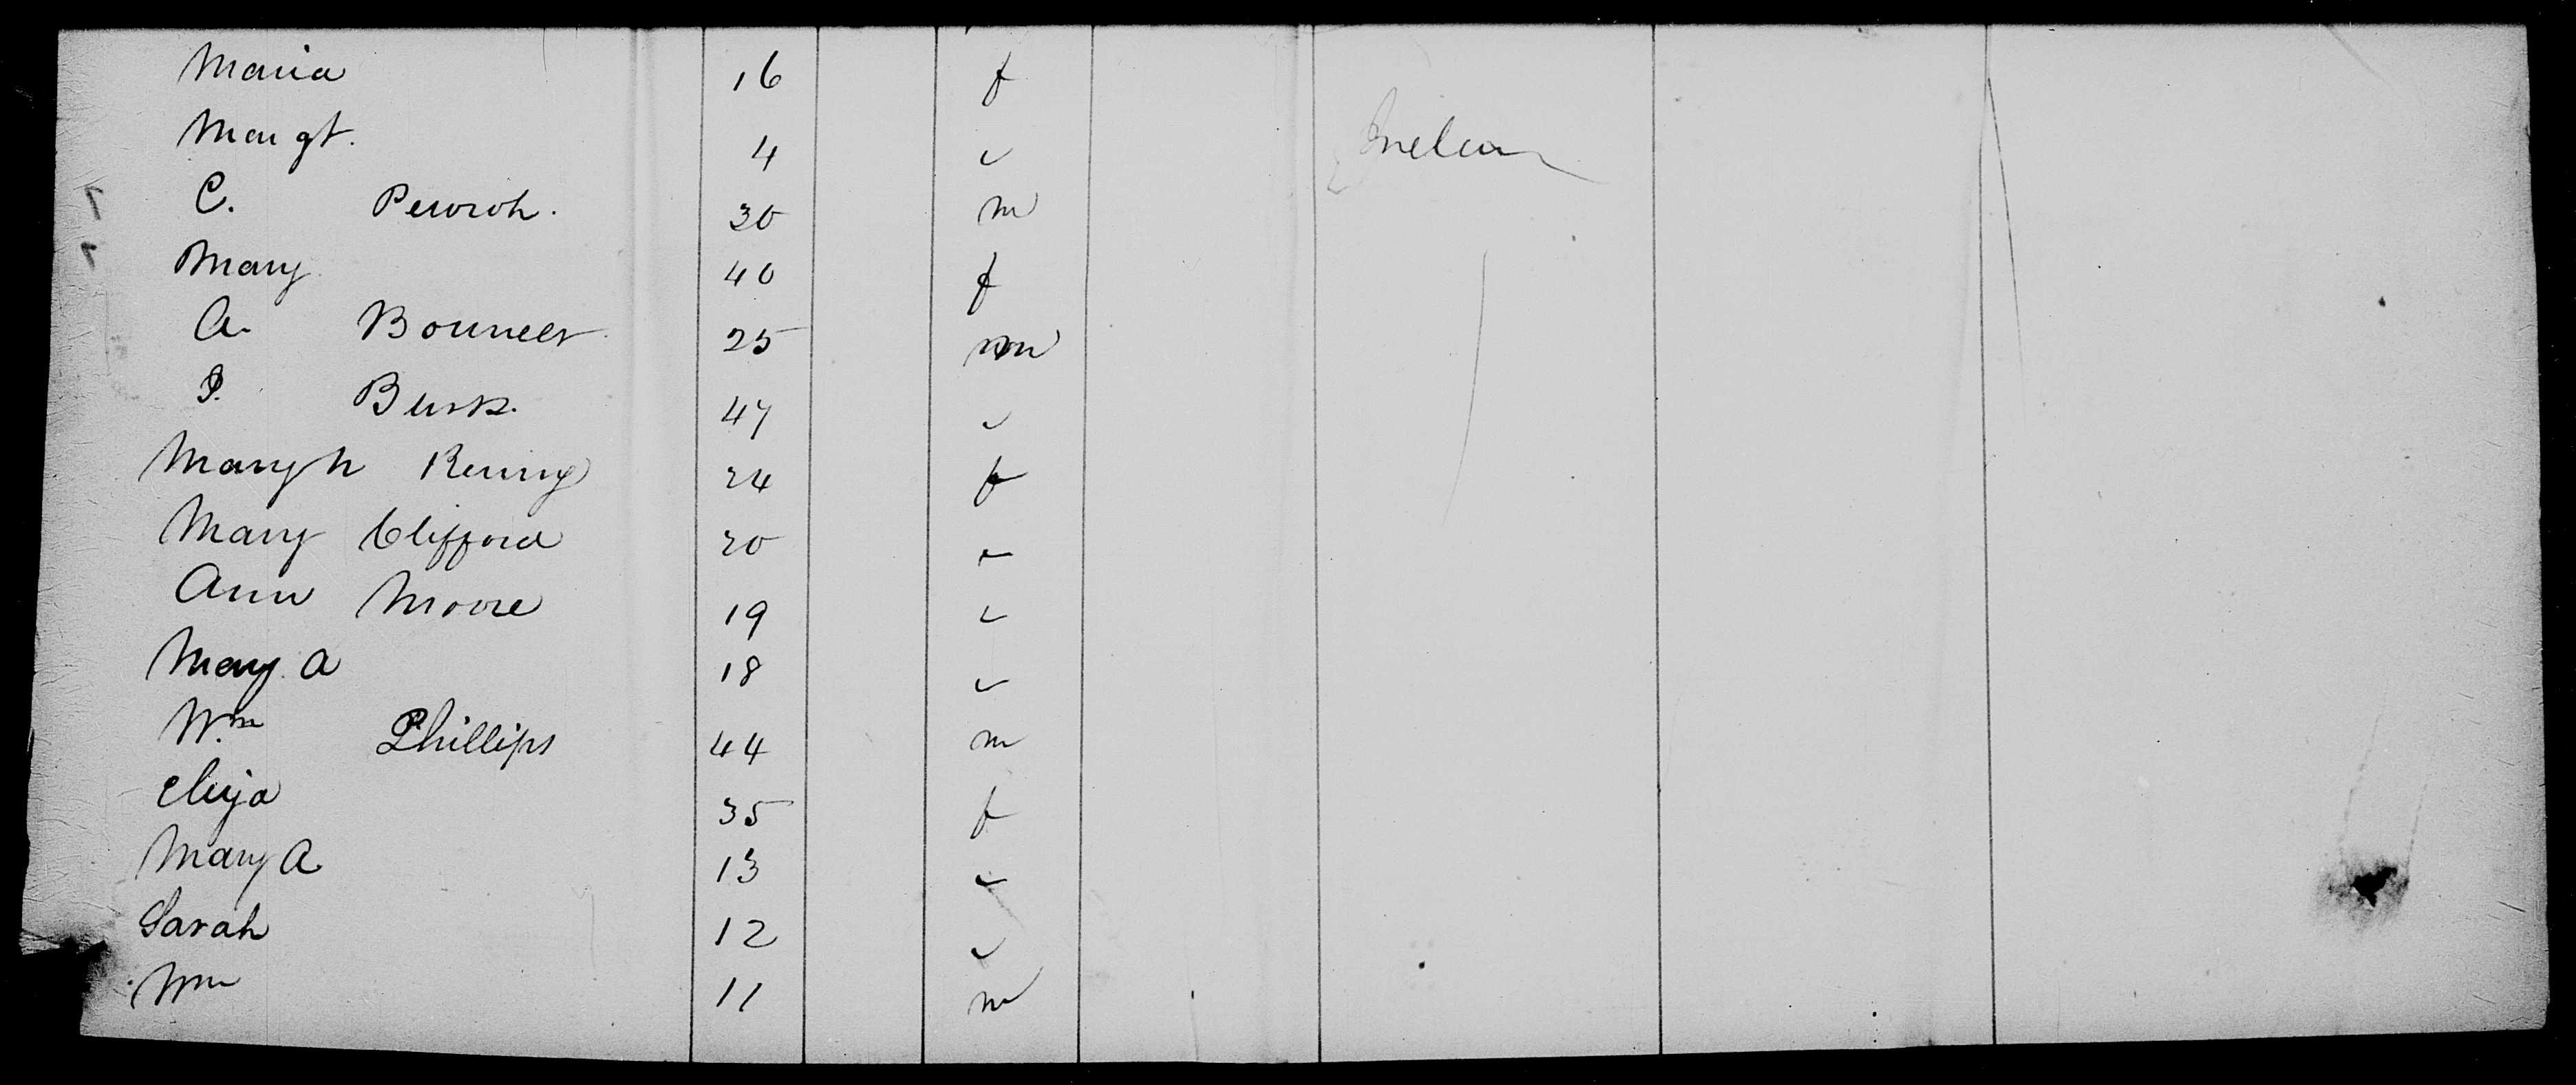 Maria 16 f
Margt. 4 ✓ Ireland
C. 30 m
Mary 40 f
A. 25 m
P. Burk. 47 ✓
Mary Kenny 24 f
Mary Clifford 20 ✓
Ann Moore 19 ✓
Mary A 18 ✓
Wm Phillips 44 m
Eliza 35 f
Mary A 13 ✓
Sarah 12 ✓
Wm 11 m